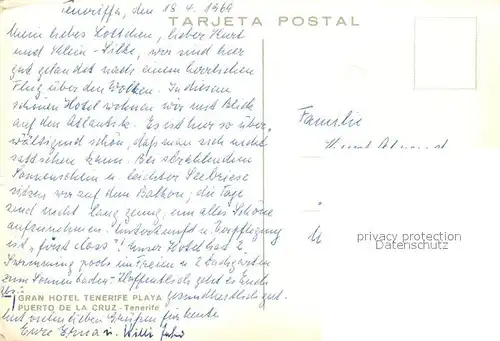 Teneriffa, den 18. 4. 1969
TARJETA POSTAL
Mein liebes Lottchen, lieber Kurt
und Klein-Silke, wir sind hier
gut gelandet nach einem herrlichen
Flug über den Wolken. In diesem
schönen Hotel wohnen wir mit Blick
auf den Atlantik. Es ist hier so über-
wältigend schön, daß man sich nicht
satt sehen kann. Bei strahlendem
Sonnenschein u. leichter Seebriese
sitzen wir auf dem Balkon; die Tage
sind nicht lang genug, um alles Schöne
aufzunehmen. Unterkunft u. Verpflegung
ist „first class"! Unser Hotel hat 2
Swimming pools im Freien u. 2 Dachgärten
zum Sonnenbaden. Hoffentlich geht es Euch
gesundheitlich gut.
GRAN HOTEL TENERIFE PLAYA
PUERTO DE LA CRUZ - Tenerife
Mit vielen lieben Grüßen für heute
Eure Erna u. Willi
Familie
privacy protection
Datenschutz